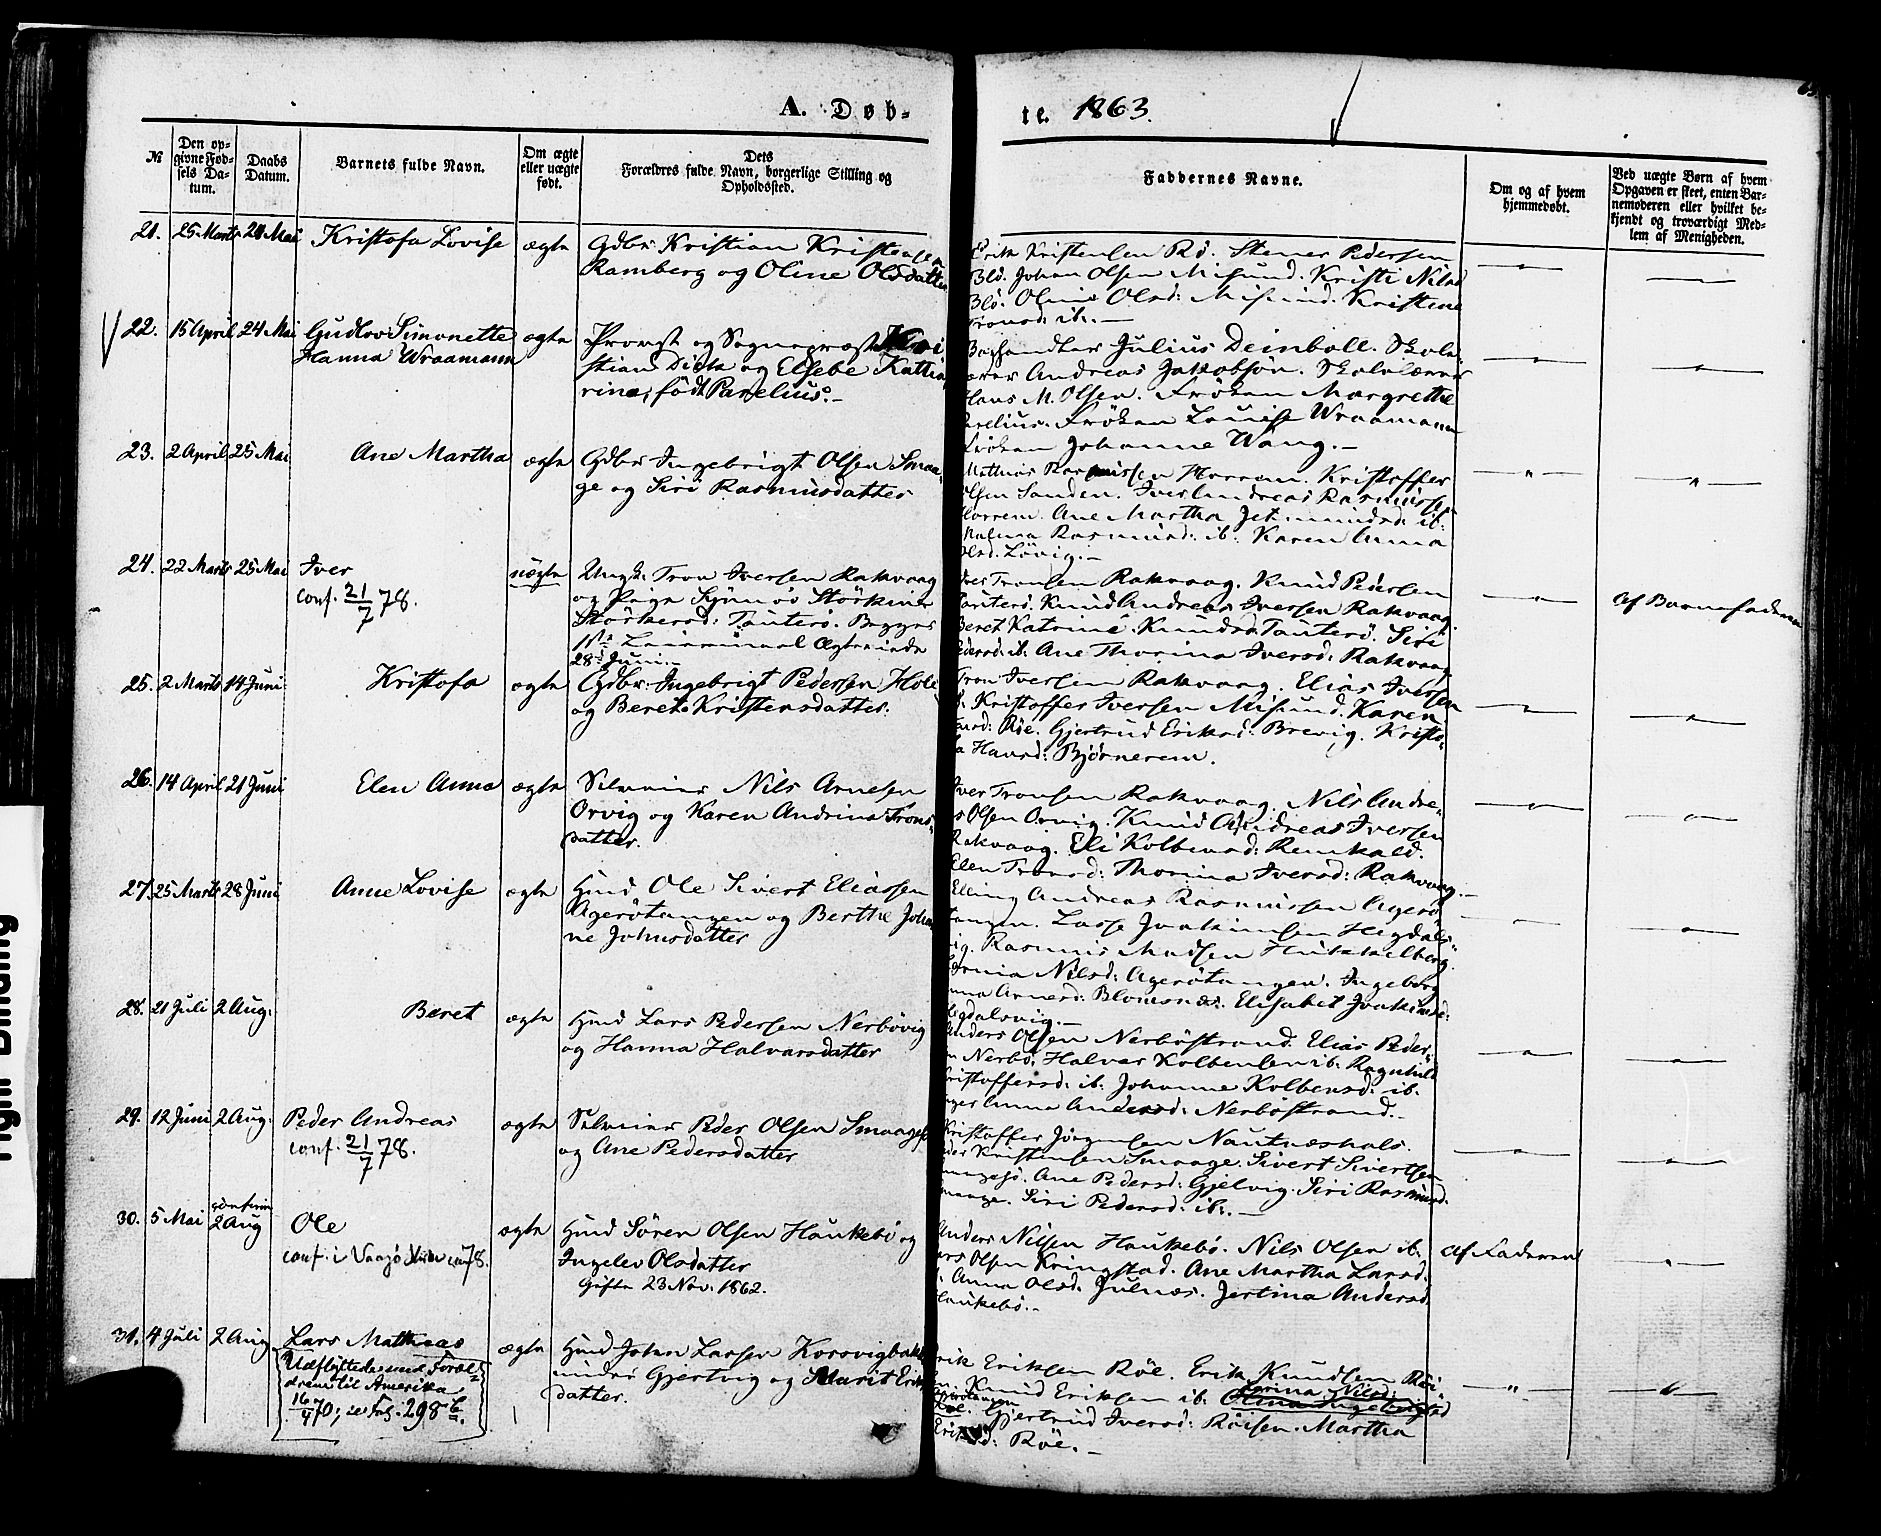 A. Døb-
te. 1863.
№
Den op-
givne Fød-
sels Da-
tum.
Daabs
Datum.
Barnets fulde Navn.
Om ægte
eller uægte
født.
Dets
Forældres fulde Navn, borgerlige Stilling og
Opholdssted.
Faddernes Navne.
Om og af hvem
hjemmedøbt.
Ved uægte Børn af hvem
Opgaven er skeet, enten Bar-
nemoderen eller hvilket be-
kjendt og troværdigt Med-
lem af Menigheden.
21. 25 Marts 24 Mai Kristofa Lovise ægte
Gdbr. Kristian Kristensen
Ramberg og Oline Olsdatter
Erik Kristensen Rö. Stener Pedersen
Blö. Johan Olsen Misund. Kristi Nilsd
Blö. Olsd: Misund. Kristine
Tronsd: ib.
22. 15 April 24 Mai Gudlov Simonette ægte
Hanna Wraamann
Provst og Sogneprest Kri
stian Dick og Elsebe Katha
rine, född Parelius.
Boghandler Julius Deinboll. Skole-
lærer Andreas Jakobsön. Skolelærer
Hans M. Olsen. Fröken Margrethe
Parelius. Fröken Louise Wraamann
Fröken Johanne Wang.
23. 2 April 25 Mai Ane Martha ægte
Gdbr Ingebrigt Olsen Smaa-
ge og Siri Rasmusdatter
Mathias Rasmussen Horrem. Kristoffer
Olsen Sanden. Iver Andreas Rasmussen
Horrem. Ane Martha Jetmundsd: ib.
Malena Rasmusd: ib. Karen Anna
Olsd. Lövig.
24. 22 Marts 25 Mai Iver uægte
conf. 21/7 78.
Ungk. Tron Iversen Rakvaag
og Pige Synnöv Störkine
Störkersd: Tauterö. Begges
1ste Leiermaal Ægteviede
28de Juni.
Iver Tronsen Rakvaag. Knud Pedersen
Tauterö. Knud Andreas Iversen Rakvaag.
Beret Katrine Knudsd Tauterö. Siri
Pedersd: ib. Ane Thorina Iversd: Rakvaag
Af Barnefaderen
25. 2 Marts 14 Juni Kristofa ægte
Gdbr. Ingebrigt Pedersen Hole
og Beret Kristensdatter.
Tron Iversen Rakvaag. Elias Iversen
ib. Kristoffer Iversen Misund. Karen
Röe. Gjertrud Eriksd: Brevig. Kristo-
fa Hansd: Bjørnerem.
26. 14 April 21 Juni Elen Anna ægte
Selveier Nils Arnesen
Orvig og Karen Andrina Trons-
datter.
Iver Tronsen Rakvaag. Nils Andre-
as Olsen Orvig. Knud Andreas Iversen
Rakvaag. Eli Kolbensd: Remkald.
Elen Tronsd: Thorina Iversd: Rakvaag.
27. 25 Marts 28 Juni Anne Lovise ægte
Hmd Ole Sivert Eliassen
Agerötangen og Berthe Joha
ne Johnsdatter
Elling Andreas Rasmussen Agerö
tangen. Lasse Joakimsen Hegdals-
vig. Rasmus Madsen Hukkelberg.
Nilsd: Agerötangen. Ingeborg
Anna Arnesd: Blomsnæs. Elisabet Joakimsd:
Hegdalsvig.
28. 21 Juli 2 Aug. Beret ægte
Hmd Lars Pedersen Nerbövig
og Hanna Halvarsdatter
Anders Olsen Nerböstrand. Elias Peder-
sen Nerbö. Halvar Kolbensen ib. Ragnhild
Kristoffersd: ib. Johanne Kolbensd. ib.
Anna Andersd: Nerböstrand.
29. 12 Juni 2 Aug. Peder Andreas ægte
conf. 21/7 78.
Selveier Peder Olsen Smaagesö
og Ane Pedersdatter
Kristoffer Jörgensen Nautneshals.
Peder Kristensen Smaage. Sivert Sivertsen
Smaagesö. Ane Pedersd: Gjelvig. Siri Rasmusd.
Smaage. Siri Pedersd: ib.
30. 5 Mai 2 Aug Ole ægte
confirm
conf. i Vaagö 78.
Hmd Sören Olsen Haukebö og
Ingelev Olsdatter
Gifte 23 Nov. 1862.
Anders Nilsen Haukebö. Nils Olsen ib.
Lars Olsen Kringstad. Ane Martha Larsd.
Anna Olsd: Julnes. Jertina Andersd.
Haukebö.
Af Faderen
31. 4 Juli 2 Aug Lars Mathias ægte
Udflyttede med Foræl-
drene til Amerika
16/4 70; se fol. 298 b.
Hmd Johan Larsen Korsvigbakk
under Gjertvig og Marit Eriks
datter.
Erik Eriksen Röe. Erik Knudsen Röi-
sen. Knud Eriksen ib. Olina Ingebrigtsd
Karina Nilsd:
Röe. Gjertrud Iversd: Röisen. Martha
Eriksd: Röe.